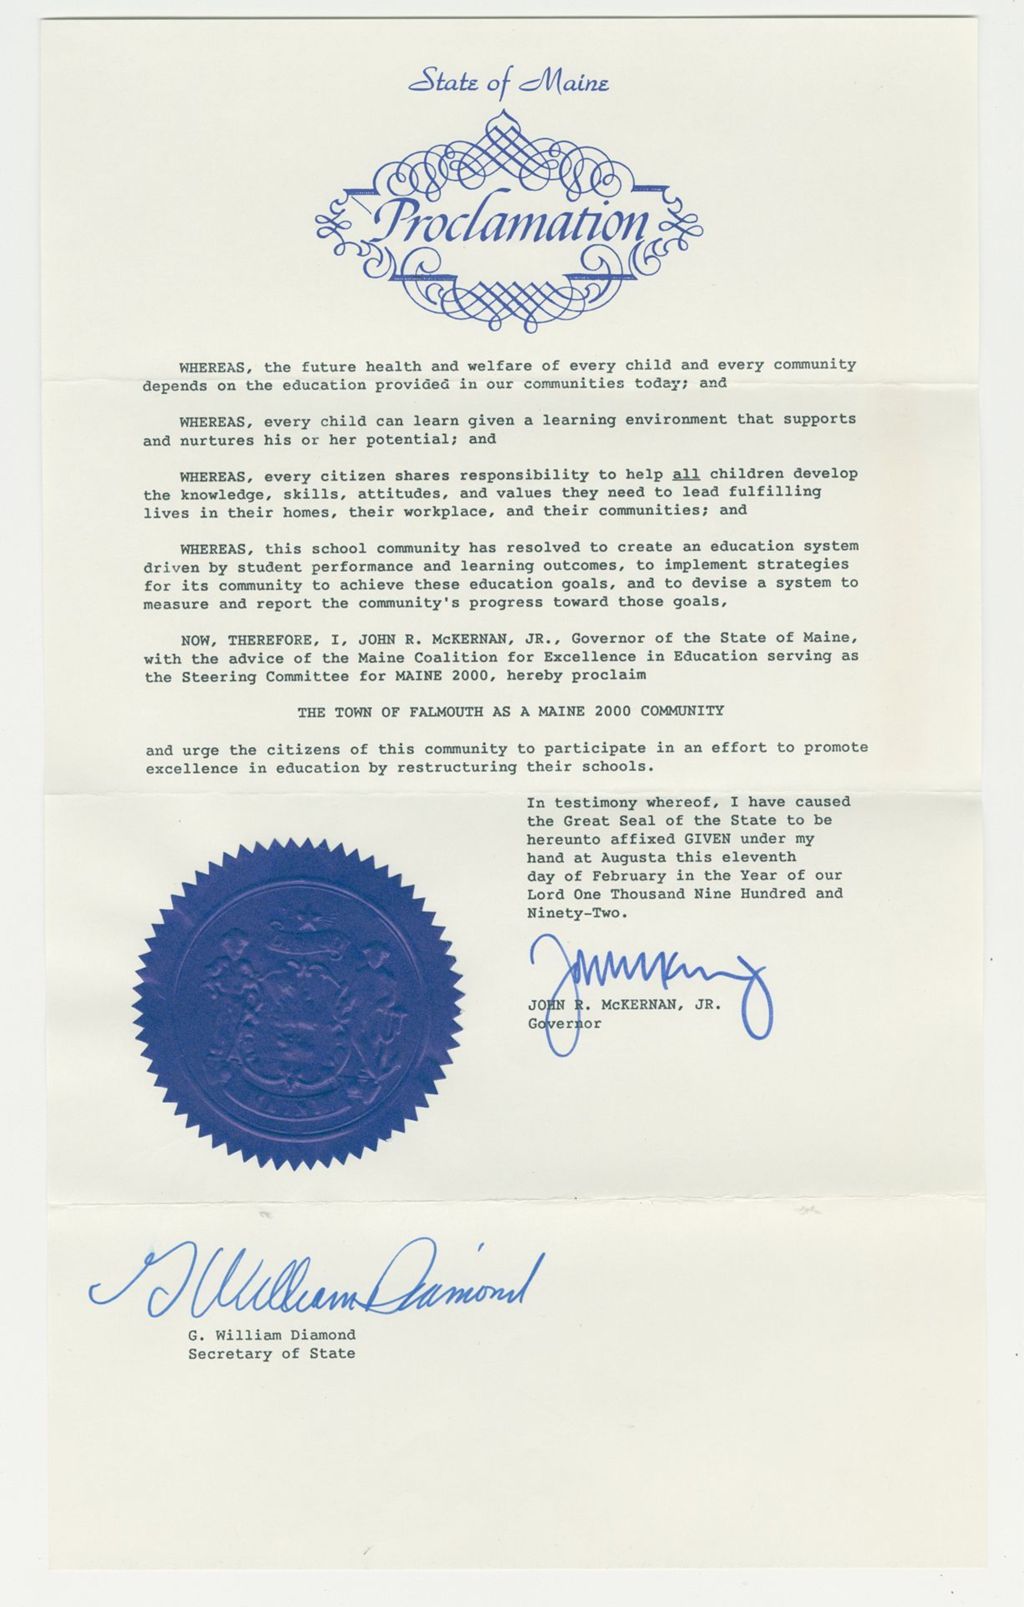 State of Maine
Proclamation
WHEREAS, the future health and welfare of every child and every community
depends on the education provided in our communities today; and
WHEREAS, every child can learn given a learning environment that supports
and nurtures his or her potential; and
WHEREAS, every citizen shares responsibility to help all children develop
the knowledge, skills, attitudes, and values they need to lead fulfilling
lives in their homes, their workplace, and their communities; and
WHEREAS, this school community has resolved to create an education system
driven by student performance and learning outcomes, to implement strategies
for its community to achieve these education goals, and to devise a system to
measure and report the community's progress toward those goals,
NOW, THEREFORE, I, JOHN R. McKERNAN, JR., Governor of the State of Maine,
with the advice of the Maine Coalition for Excellence in Education serving as
the Steering Committee for MAINE 2000, hereby proclaim
THE TOWN OF FALMOUTH AS A MAINE 2000 COMMUNITY
and urge the citizens of this community to participate in an effort to promote
excellence in education by restructuring their schools.
In testimony whereof, I have caused
the Great Seal of the State to be
hereunto affixed GIVEN under my
hand at Augusta this eleventh
day of February in the Year of our
Lord One Thousand Nine Hundred and
Ninety-Two.
JOHN R. McKERNAN, JR.
Governor
G William Diamond
G. William Diamond
Secretary of State